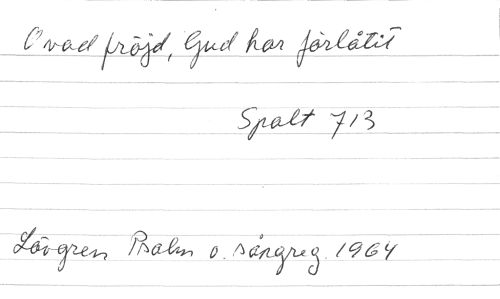 O vad fröjd, Gud har förlåtit
Spalt 713
Lövgren Psalm o. sångreg. 1964